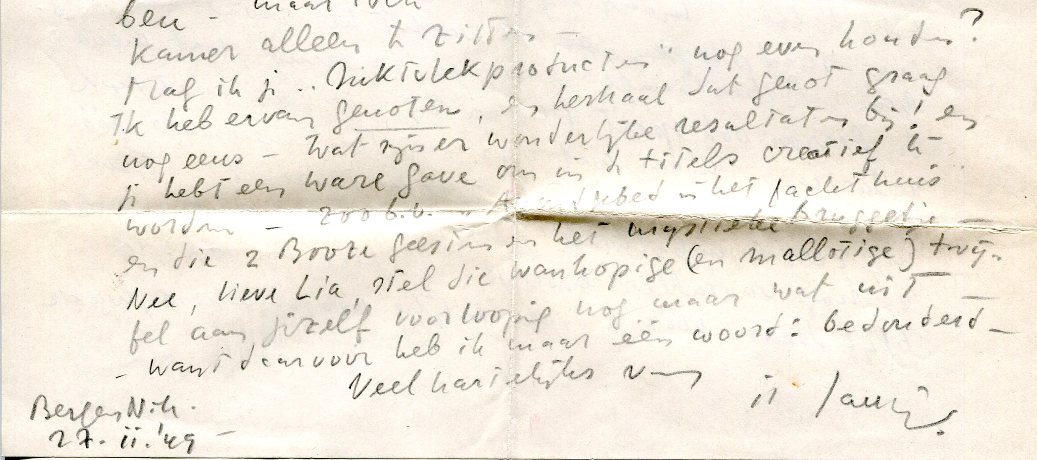 ben - maar
kamer alleen te zitten -
Mag ik je "Inktvlekproducten" nog even houden?
Ik heb ervan genoten, en herhaal dat genot graag
nog eens - Wat zijn er wonderlijke resultaten bij! en
je hebt een ware gave om in de titels creatief te
worden - zoo b.v. " in het Jachthuis"
en die 2 Booze geesten en het mystieke Bruggetje -
Nee, lieve Lia, stel die wanhopige (en mallotige) twij-
fel aan jezelf voorloopig nog maar wat uit
- want daarvoor heb ik maar één woord: bedonderd -
Veel hartelijks van
Bergen N.H.
27.II.'49 -